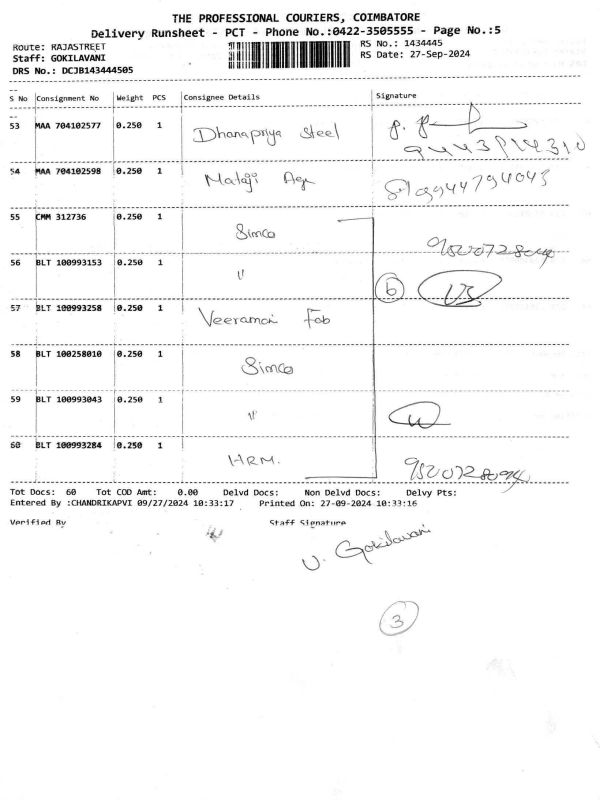 THE PROFESSIONAL COURIERS, COIMBATORE
Delivery Runsheet - PCT - Phone No.:0422-3505555 - Page No.:5
Route: RAJASTREET RS No.: 1434445
Staff: GOKILAVANI RS Date: 27-Sep-2024
DRS No.: DCJB143444505
S No Consignment No Weight PCS Consignee Details Signature
53 MAA 704102577 0.250 1 Dhanapriya Steel
54 MAA 704102598 0.250 1 Mataji Age 9944794043
55 CMM 312736 0.250 1 Simco
56 BLT 100993153 0.250 1 " 6
57 BLT 100993258 0.250 1 Veeramani Fab
58 BLT 100258010 0.250 1 Simco
59 BLT 100993043 0.250 1 "
60 BLT 100993284 0.250 1 HRM.
Tot Docs: 60 Tot COD Amt: 0.00 Delvd Docs: Non Delvd Docs: Delvy Pts:
Entered By :CHANDRIKAPVI 09/27/2024 10:33:17 Printed On: 27-09-2024 10:33:16
Verified By Staff Signature
V. Gokilavani
3